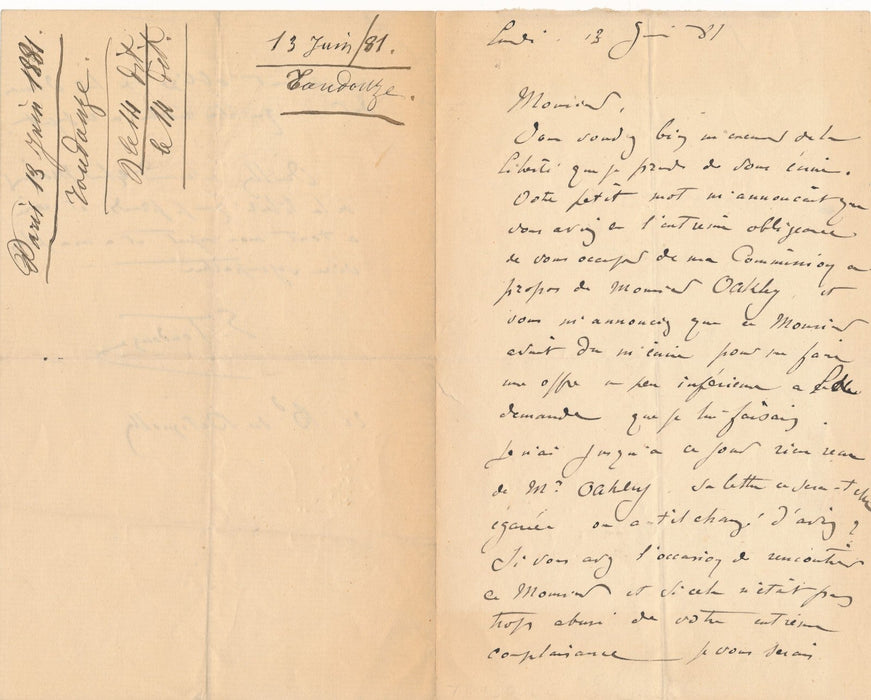 Paris 13 Juin 1881.
Toudouze.
R le 14 dit
le 14 dit.
13 Juin/81.
Toudouze.
Lundi 13 Juin 81
Monsieur,
Vous voudrez bien m'excuser de la
liberté que je prends de vous écrire.
Votre petit mot m'annonçait que
vous aviez eu l'extrême obligeance
de vous occuper de ma Commission a
propos de Monsieur Oakley et
vous m'annonciez que ce Monsieur
avait du m'écrire pour me faire
une offre un peu inférieure a la
demande que je lui faisais.
Je n'ai jusqu'a ce jour rien reçu
de Mr. Oakley. Sa lettre ce sera-t-elle
égarée ou a-t-il changé d'avis ?
Si vous avez l'occasion de rencontrer
ce Monsieur et si cela n'était pas
trop abusé de votre extrême
complaisance je vous serais